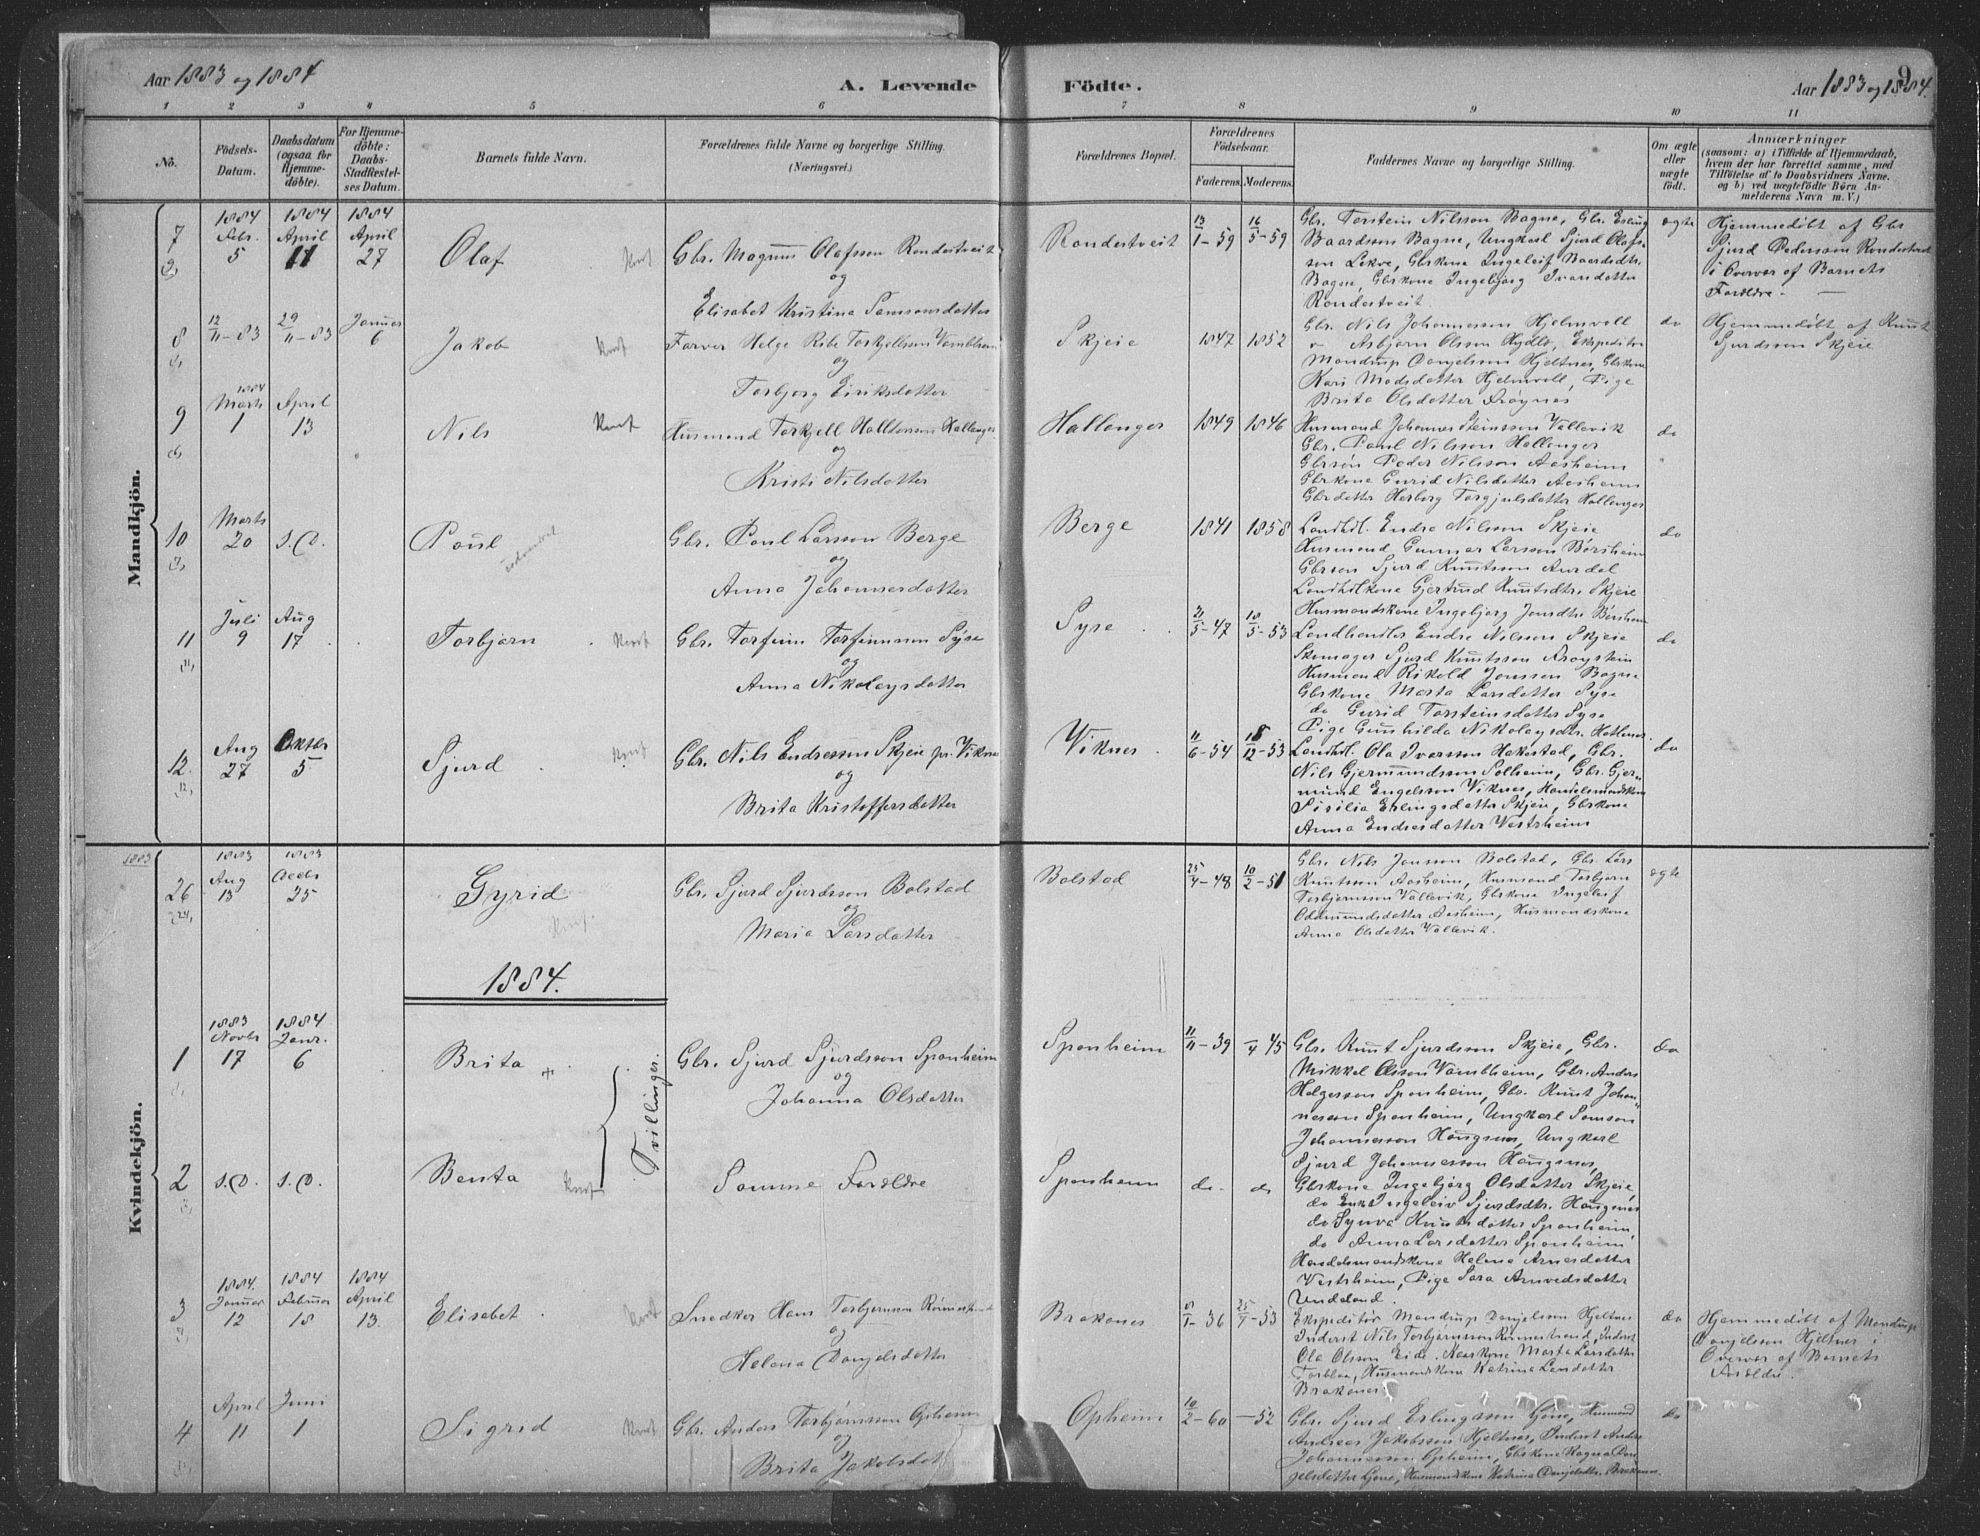 Aar 1883 og 1884
A. Levende
Födte.
Aar 1883 og 1884.
9
1 2 3 4 5 6 7 8 9 10 11
No.
Födsels-Datum.
Daabsdatum (ogsaa for Hjemme-döbte).
For Hjemme-döbte: Daabs-Stadfæstel-ses Datum.
Barnets fulde Navn.
Forældrenes fulde Navne og borgerlige Stilling. (Næringsvei.)
Forældrenes Bopæl.
Forældrenes Födselsaar.
Faderens. Moderens.
Faddernes Navne og borgerlige Stilling.
Om ægte eller uægte födt.
Anmærkninger
(saasom: a) i Tilfælde af Hjemmedaab, hvem der har forrettet samme, med Tilföielse af to Daabsvidners Navne. og b) ved uægtefödte Börn An-melderens Navn m. V.)
Mandkjön.
7
1884 Febr. 5
1884 April 11
1884 April 27
Olaf
Gbr. Magnus Olafsson Rondestveit
og
Elisabet Kristina Samsonsdatter
Rondestveit
13/1-59 16/5-59
Gbr. Torstein Nilsson Bagne, Gbr. Erling
Baardsson Bagne, Ungkarl Sjurd Olafs-
son Lekve, Gbrkone Ingeleif Baardsdtr.
Bagne, Gbrkone Ingebjørg Ivarsdatter
Rondestveit.
ægte
Hjemmedøbt af Gbr
Sjurd Pedersson Rondestveit
i Overvær af Barnets
Forældre.
8
12/11-83
29/11-83
Januar 6
Jakob
Farver Helge Rabe Torkjellsson Vambheim
og
Torbjørg Eiriksdatter
Skjeie
1847 1852
Gbr. Nils Johannesson Hjelmvoll
" Asbjørn Olsson Hydle, Ekspeditør
Mandrup Danjelsson Hjeltnes, Gbrkone
Kari Madsdatter Hjelmvoll, Pige
Brita Olsdatter Frøynes
do
Hjemmedøbt af Knut
Sjurdsson Skjeie
9
1884 Marts 1
April 13
Nils
Husmand Torkjell Halldorsson Hallanger
og
Kristi Nilsdatter
Hallanger
1849 1846
Husmand Johannes Steinsson Vallevik
Gbr. Paul Nilsson Hallanger
Gbrsøn Peder Nilsson Aasheim
Gbrkone Gurid Nilsdatter Aasheim
Gbrdatter Herborg Torgjulsdatter Hallanger
do
10
Marts 20
s.D.
Paul
udvandret
Gbr. Paul Larsson Berge
og
Anna Johannesdatter
Berge
1841 1858
Landhdl. Endre Nilsson Skjeie
Husmand Gunnar Larsson Børsheim
Gbrsøn Sjurd Knutsson Aurdal
Landhdlkone Gjertrud Knutsdtr. Skjeie
Husmandskone Ingebjørg Jonsdtr. Børsheim
do
11
Juli 9
Aug 17
Torbjørn
Gbr. Torfinn Torfinnsson Syse
og
Anna Nikolaysdatter
Syse
21/5-47 10/5-53
Landhandler Endre Nilsson Skjeie
Skomager Sjurd Knutsson Frøystein
Husmand Rikold Jonsson Bagne
Gbrkone Marta Larsdatter Syse
do Gurid Torsteinsdatter Syse
Pige Gunhilda Nikolaysdtr. Hatlenes
do
12.
Aug 27
Oktbr 5
Sjurd
Gbr. Nils Endresson Skjeie pr. Viknes
og
Brita Kristoffersdatter
Viknes
11/6-54 18/12-53
Landhdl. Ola Iversson Hakestad, Gbr.
Nils Gjermundsson Solheim, Gbr. Gjer-
mund Engelsson Viknes, Handelsmandskone
Sisilia Erlingsdatter Skjeie, Gbrkone
Anna Endresdatter Vestrheim
do
Kvindekjön.
1883
26
1883 Aug 13
1883 25
Gyrid
Gbr. Sjurd Sjurdsson Bolstad
og
Maria Larsdatter
Bolstad
25/4-48 10/2-51
Gbr. Nils Jonsson Bolstad, Gbr. Lars
Knutsson Aasheim, Husmand Torbjørn
Torbjørnsson Vallevik, Gbrkone Ingeleif
Oddmundsdatter Aasheim, Husmandskone
Anna Olsdatter Vallevik.
ægte
1884.
1
1883 Novbr 17
1884 Janr. 6
Brita
Tvillinger.
Gbr. Sjurd Sjurdsson Sponheim
og
Johanna Olsdatter
Sponheim
11/11-39 /4 45
Gbr. Knut Sjurdsson Skjeie, Gbr.
Mikkel Olsson Vambheim, Gbr. Anders
Helgesson Sponheim, Gbr. Knut Johan-
nesson Sponheim, Ungkarl Samson
Johannesson Haugsnes, Ungkarl
Sjurd Johannesson Haugsnes,
Gbrkone Ingebjørg Olsdatter Skjeie,
do Enke Ingeleiv Sjurdsdtr. Haugsnes
do Synva Knutsdatter Sponheim,
do Anna Larsdatter Sponheim
Handelsmandskone Helena Arnesdatter
Vestrheim, Pige Sara Arnvedsdatter
Undeland.
do
2
s.D.
s.D.
Benta
Samme Forældre
Sponheim
do. do
3
1884. Januar 12
1884 Februar 18
1884 April 13.
Elisabet
Snedker Hans Torbjørnsson Rønnestrand
og
Helena Danjelsdatter
Brakenes
8/1-36 25/7-53
Ekspeditør Mandrup Danjelsson Hjeltnes
Inderst Nils Torbjørnsson Rønnestrand, Inderst
Ola Olsson Eide, Marta Larsdatter
Torbloe, Husmandskone Katrina Larsdatter
Brakenes
do
Hjemmedøbt af Mandrup
Danjelsson Hjeltnes i
Overvær af Barnets
Forældre.
4
April 11
Juni 1
Sigrid
Gbr. Anders Torbjørnsson Opheim
og
Brita Jakobsdat
Opheim
10/2-60 -52
Gbr. Sjurd Erlingsson Lione, Husmand
Andreas Jakobsson Hjeltnes, Inderst Anders
Johannesson Opheim, Gbrkone Ragna Dan-
jelsdatter Lione, Husmandskone Katrina Danjelsdtr. Brakenes.
do